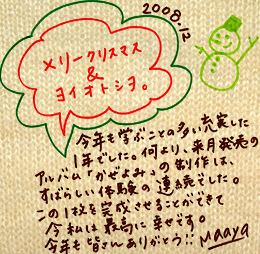 2008.12
メリークリスマス
&
ヨイオトシヨ。
今年も学ぶことの多い充実した
1年でした。何より、来月発売の
アルバム「かぜよみ」の制作は、
すばらしい体験の連続でした。
この1枚を完成させることができて
今私は最高に幸せです。
今年も皆さんありがとう!!
maaya